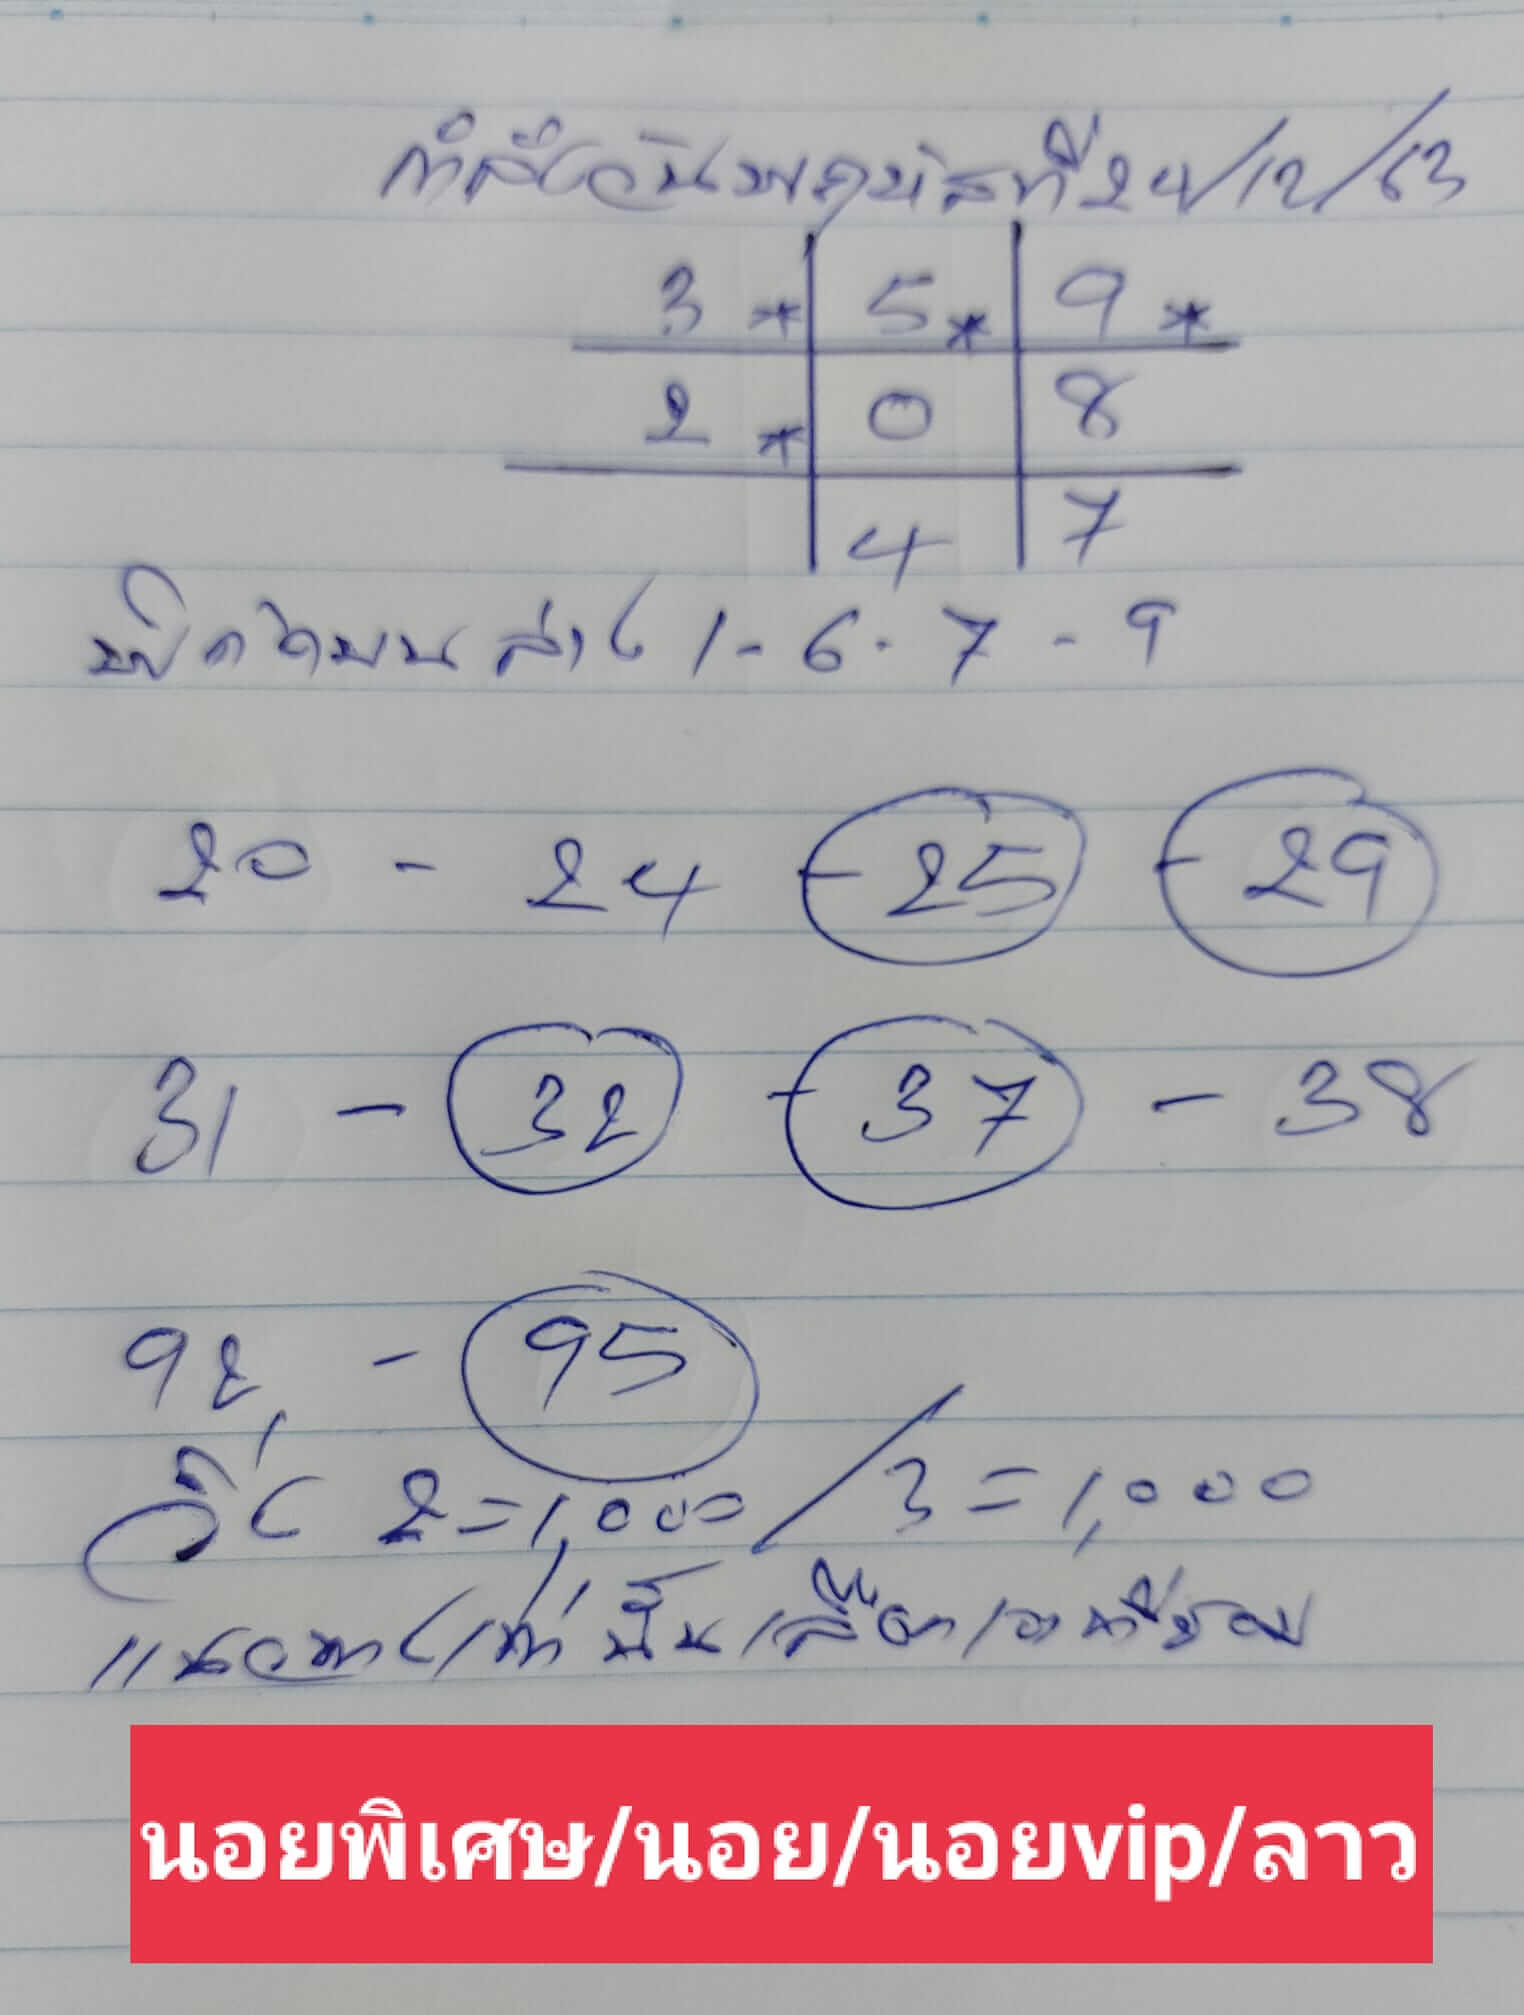 กำลังวันพฤหัสที่ 24/12/63
3 * 5 * 9 *
2 * 0 8
4 7
พิกัดบนล่าง 1 - 6 - 7 - 9
20 - 24 - 25 - 29
31 - 32 - 37 - 38
92 - 95
วิ่ง 2 = 1,000 / 3 = 1,000
แนวทางเท่านั้นเลือกเอาที่ชอบ
นอยพิเศษ/นอย/นอยvip/ลาว